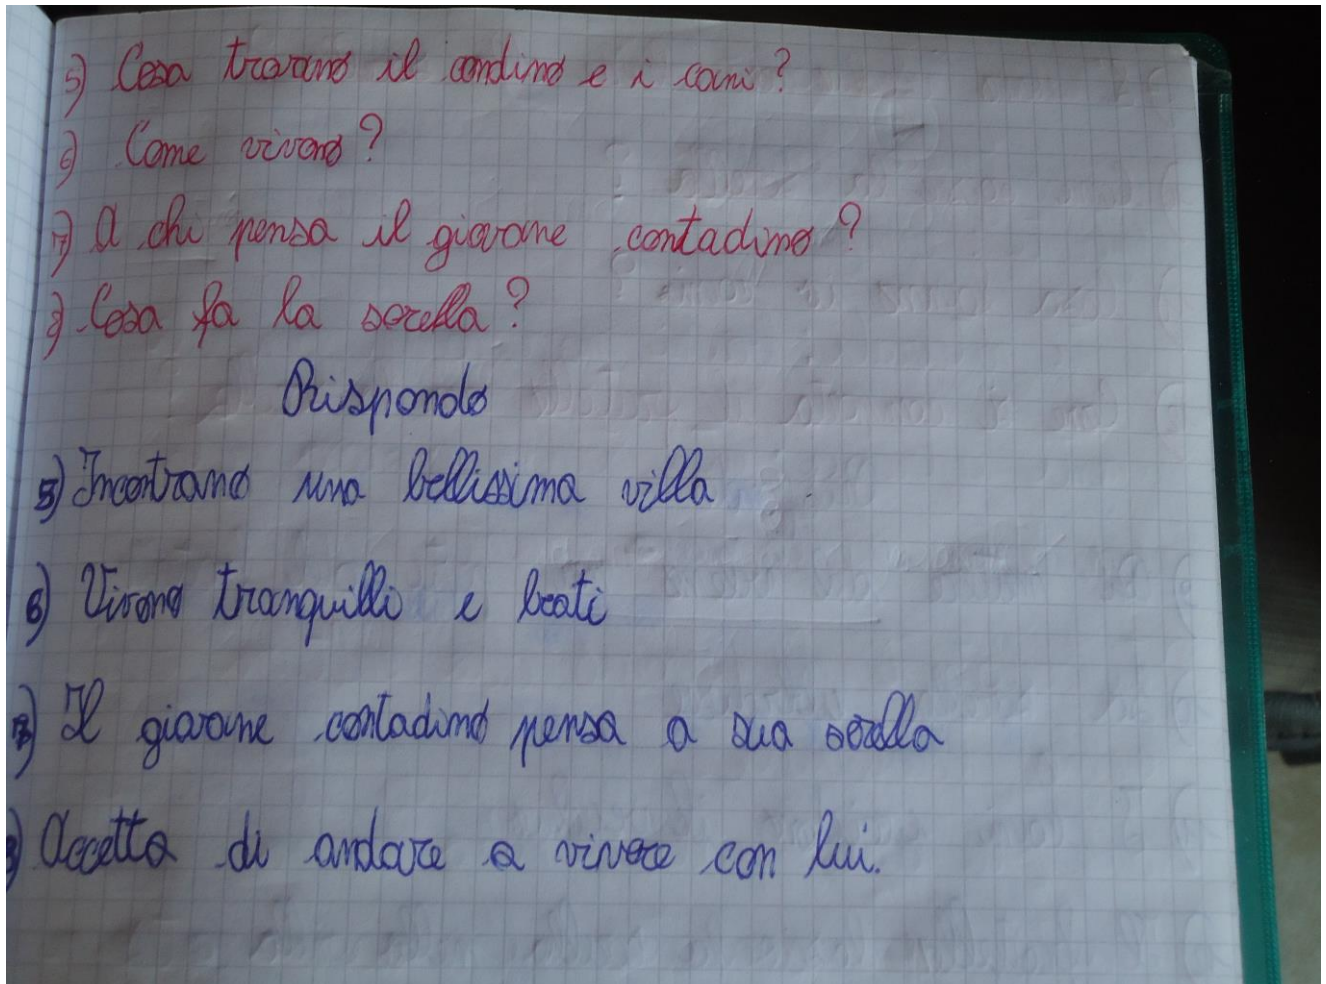 5) Cosa trovano il condino e i cani?
6) Come vivono?
7) A chi pensa il giovane contadino?
8) Cosa fa la sorella?
Rispondo
5) Incontrano una bellissima villa
6) Vivono tranquilli e beati
7) Il giovane contadino pensa a sua sorella
8) Accetta di andare a vivere con lui.